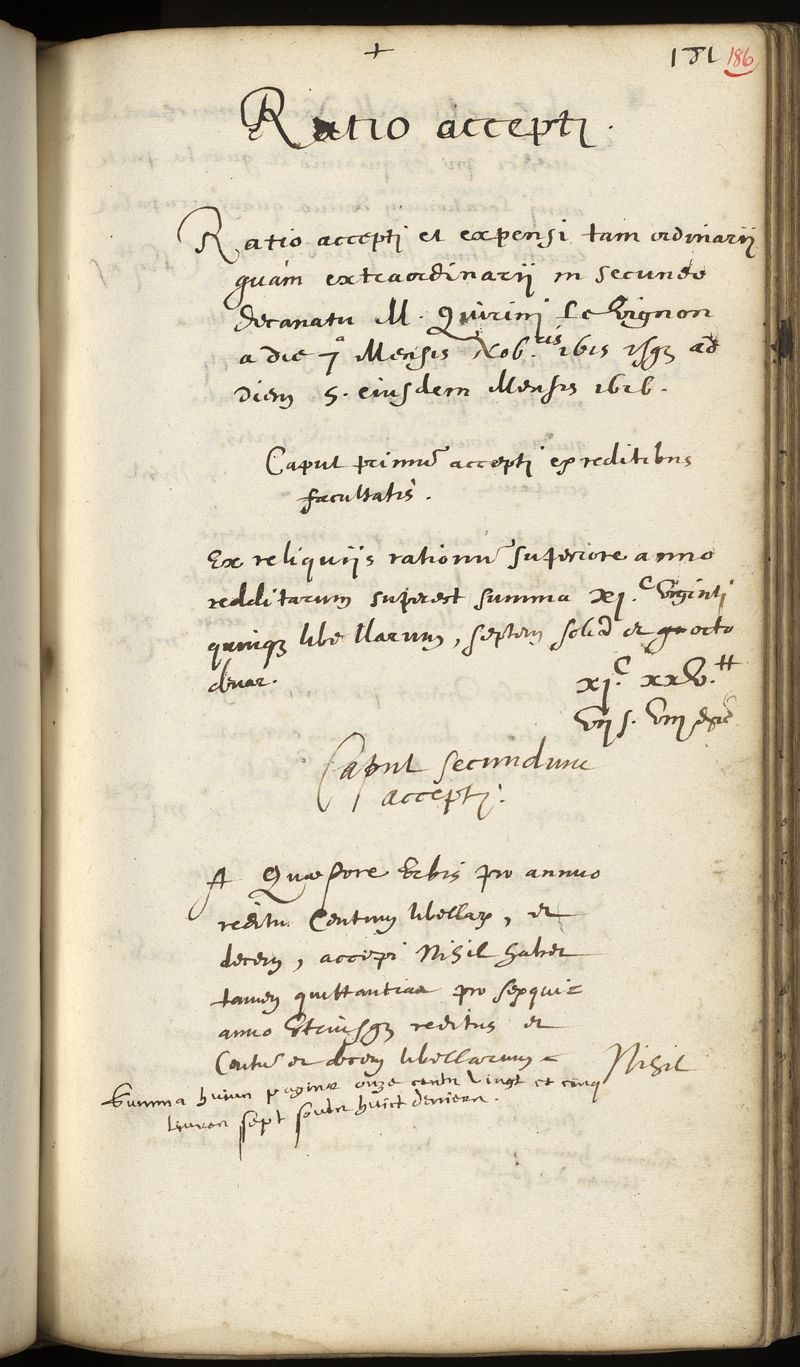 +
181 186
Ratio accepti.
Ratio accepti et expensi tam ordinarij
quàm extraordinarij in secundo
decanatu M. Quirini Le Vignon
a die 7ª Mensis Nob.ris 1615 usq3 ad
diem 5. eiusdem Mensis 1616.
Caput primū accepti ex reditibus
facultatis.
Ex reliquijs rationū superiore anno
redditarum superest summa xj.C viginti
quinq3 libellarum, septem solid et octo
denar.
xj.C xxv.tt
vij s. viij
Caput secundum
accepti.
A Quæstore Vrbis pro annuo
reditu Centum libellar, et
decem, accepi Nihil habet
tamen quittantias pro sexqui=
anno vtriusq3 reditus et
Centū et decem libellarum = Nihil
Summa huius paginæ onze centz vingt et cinq
liures sept soubz huict deniers.